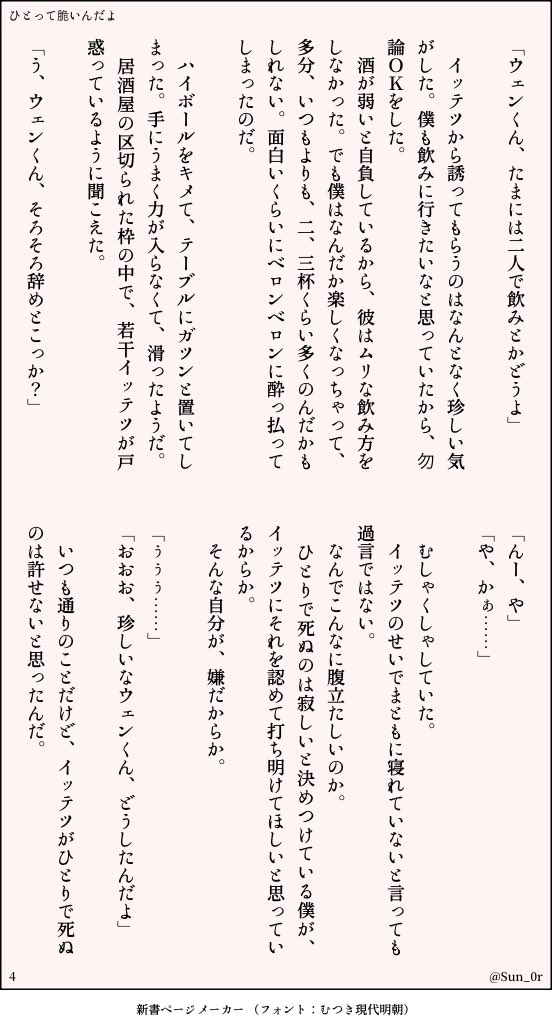 ひとって脆いんだよ
「ウェンくん、たまには二人で飲みとかどうよ」
イッテツから誘ってもらうのはなんとなく珍しい気
がした。僕も飲みに行きたいなと思っていたから、勿
論ＯＫをした。
酒が弱いと自負しているから、彼はムリな飲み方を
しなかった。でも僕はなんだか楽しくなっちゃって、
多分、いつもよりも、二、三杯くらい多くのんだかも
しれない。面白いくらいにベロンベロンに酔っ払って
しまったのだ。
ハイボールをキメて、テーブルにガツンと置いてし
まった。手にうまく力が入らなくて、滑ったようだ。
居酒屋の区切られた枠の中で、若干イッテツが戸
惑っているように聞こえた。
「う、ウェンくん、そろそろ辞めとこっか？」
「んー、や」
「や、かぁ……」
むしゃくしゃしていた。
イッテツのせいでまともに寝れていないと言っても
過言ではない。
なんでこんなに腹立たしいのか。
ひとりで死ぬのは寂しいと決めつけている僕が、
イッテツにそれを認めて打ち明けてほしいと思ってい
るからか。
そんな自分が、嫌だからか。
「ぅぅぅ……」
「おおお、珍しいなウェンくん、どうしたんだよ」
いつも通りのことだけど、イッテツがひとりで死ぬ
のは許せないと思ったんだ。
4
@Sun_0r
新書ページメーカー（フォント：むつき現代明朝）